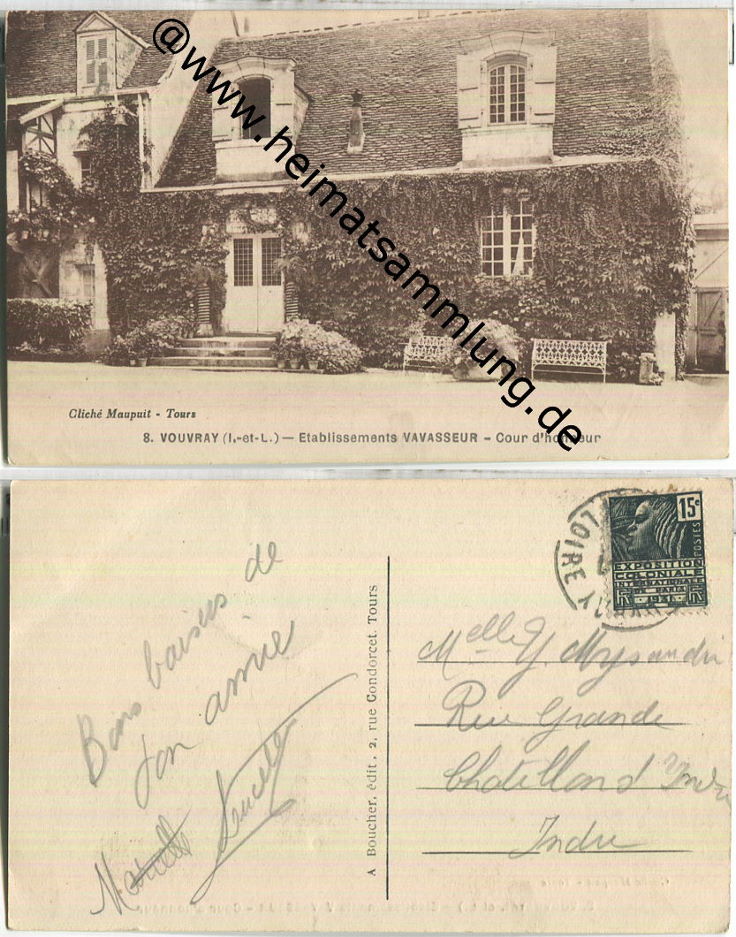 @www.heimatsammlung.de
Cliché Maupuit - Tours
8. VOUVRAY (I.-et-L.) — Etablissements VAVASSEUR - Cour d'honneur
15c
POSTES
EXPOSITION
COLONIALE
INTERNATIONALE
LOIRE
Bons baisers de
ton amie
Lucette
A Boucher, édit., 2, rue Condorcet. Tours
Melle Y.
Rue Grande
Chatillon s/ Indre
Indre